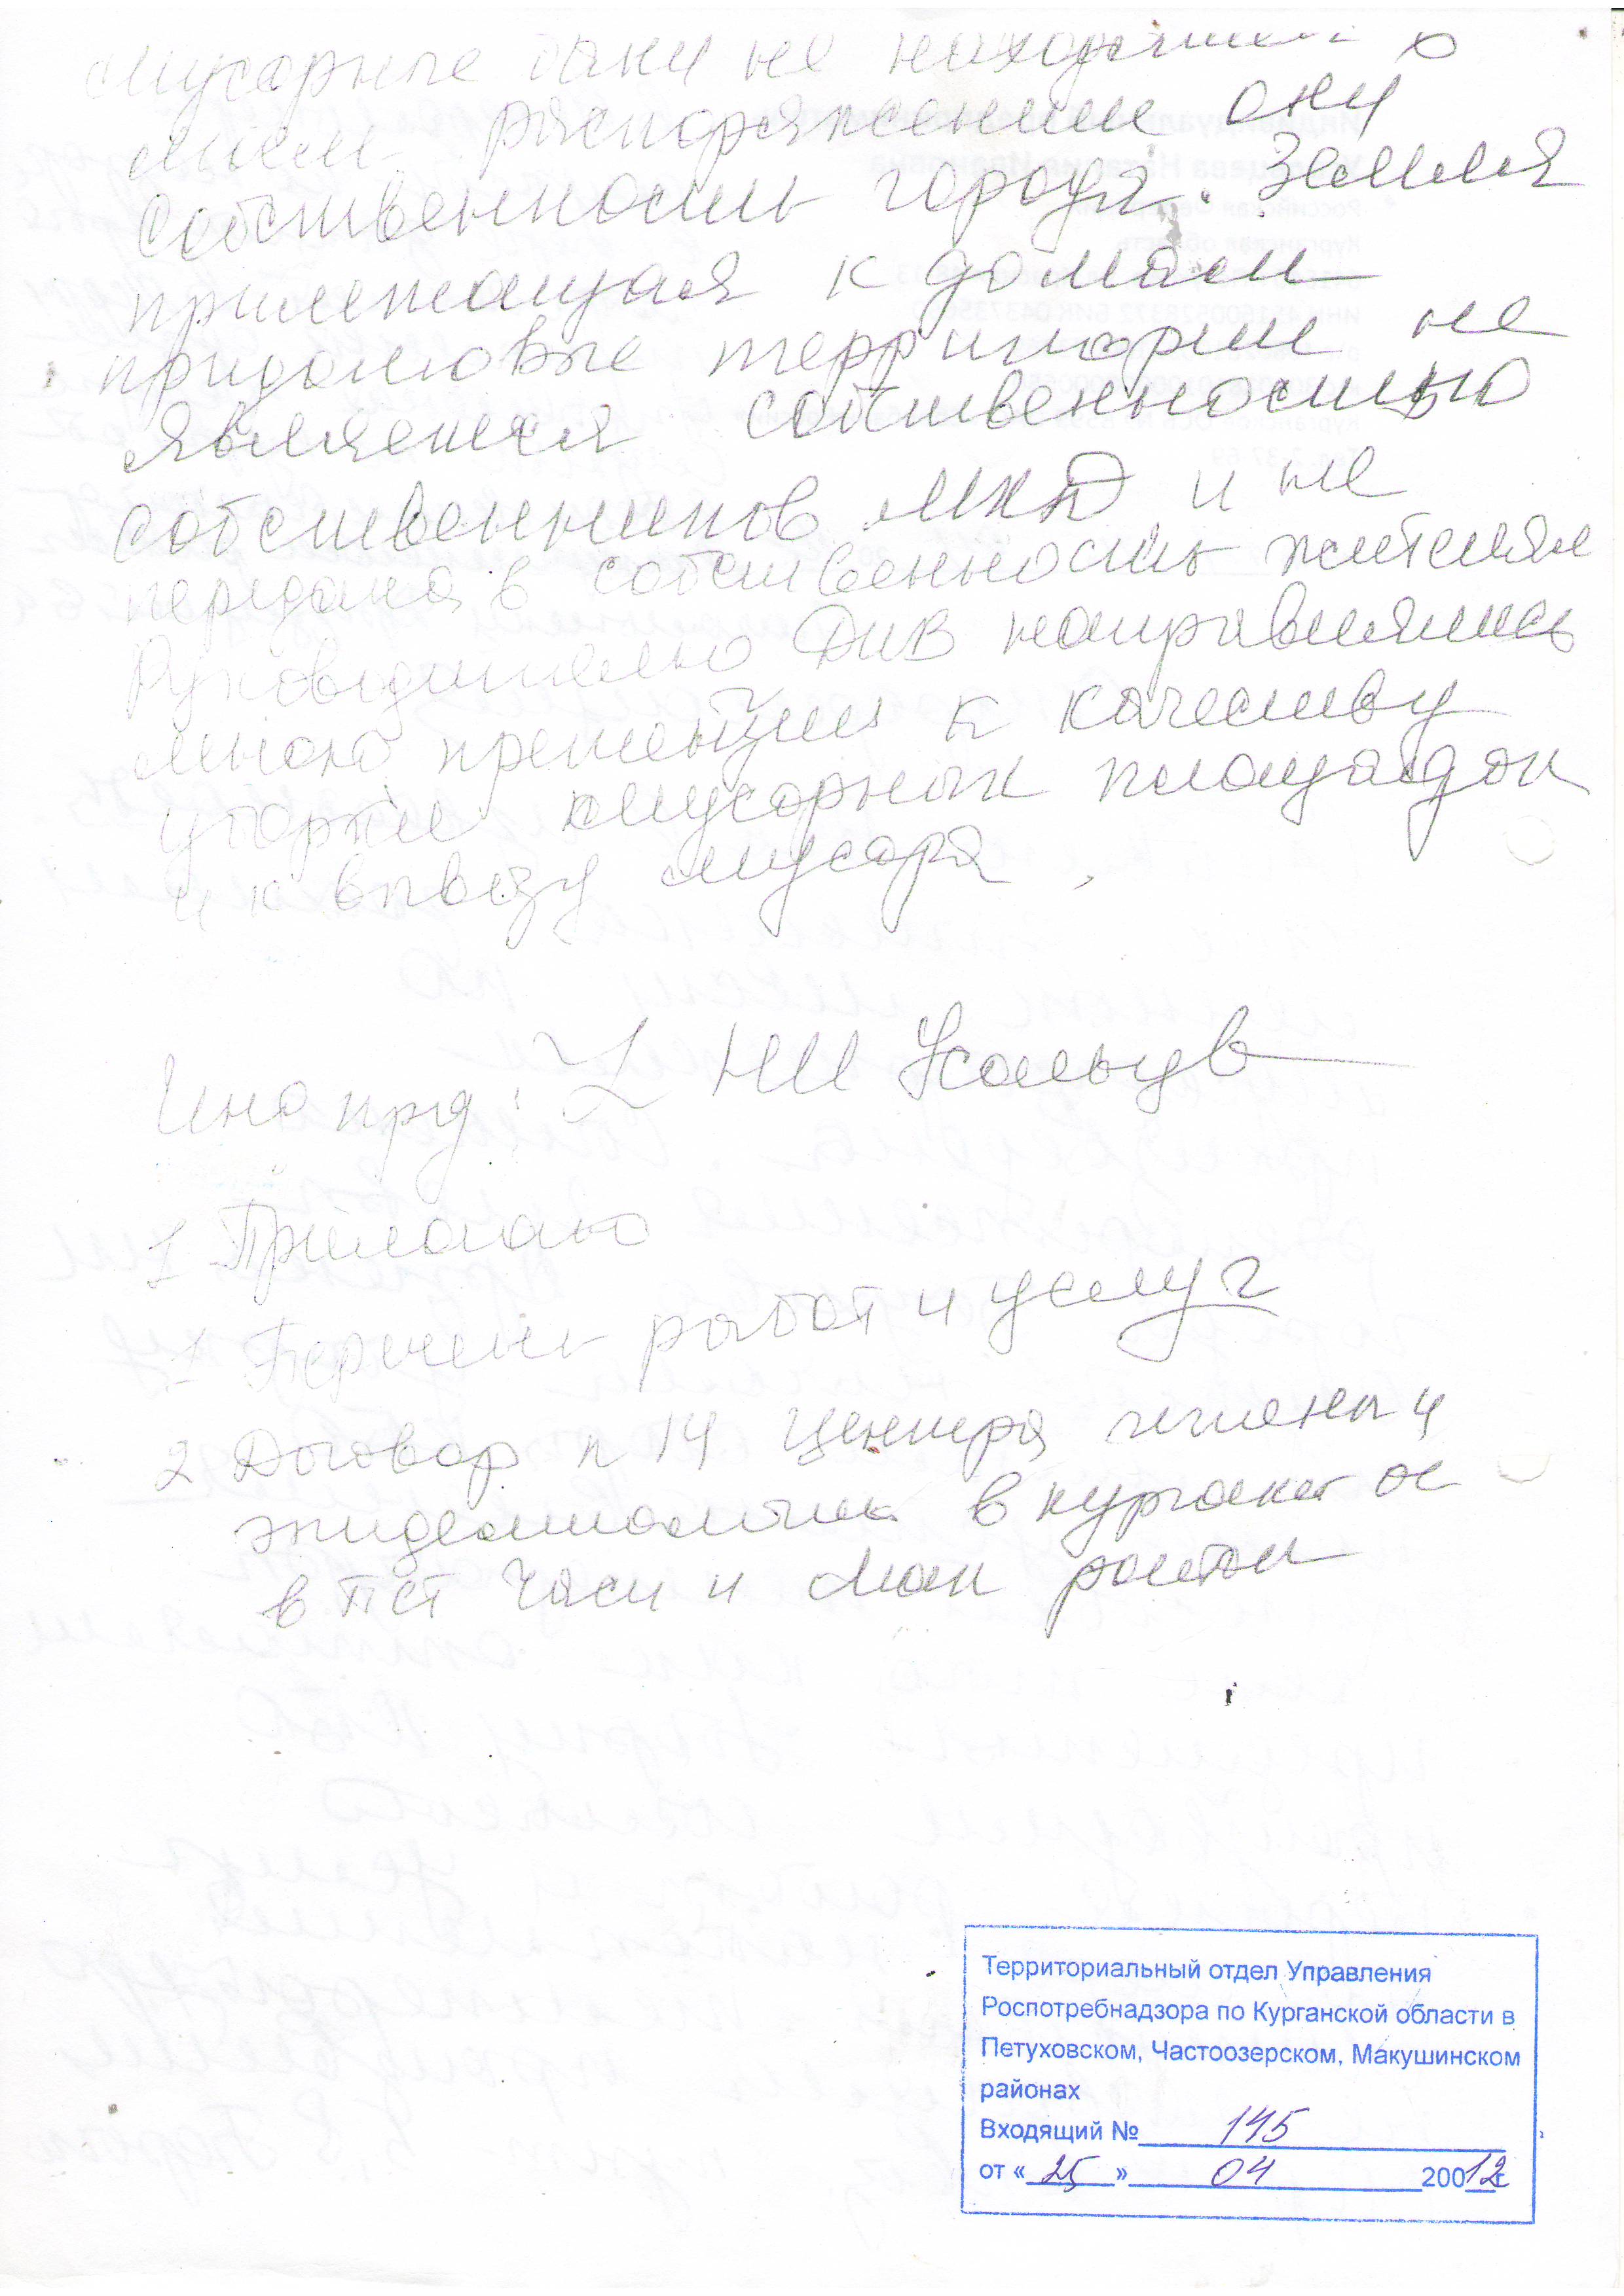 мусорные баки не находятся в
моем распоряжении они
собственность города. Земля
прилежащая к домам
придомовые территории не
является собственностью
собственников МКД и не
передана в собственность жителям
Руководителю ДИВ направлялись
мною претензии к качеству
уборки мусорных площадок
и к вывозу мусора.
Инд прд: НИ Усольцев
1 Прилагаю
1 Перечень работ и услуг
2 Договор n 14 Центра гигиены и
эпидемиологии в
в Пет Част и Мак
Территориальный отдел Управления
Роспотребнадзора по Курганской области в
Петуховском, Частоозерском, Макушинском
районах
Входящий № 145
от « 25 » 04 20012г